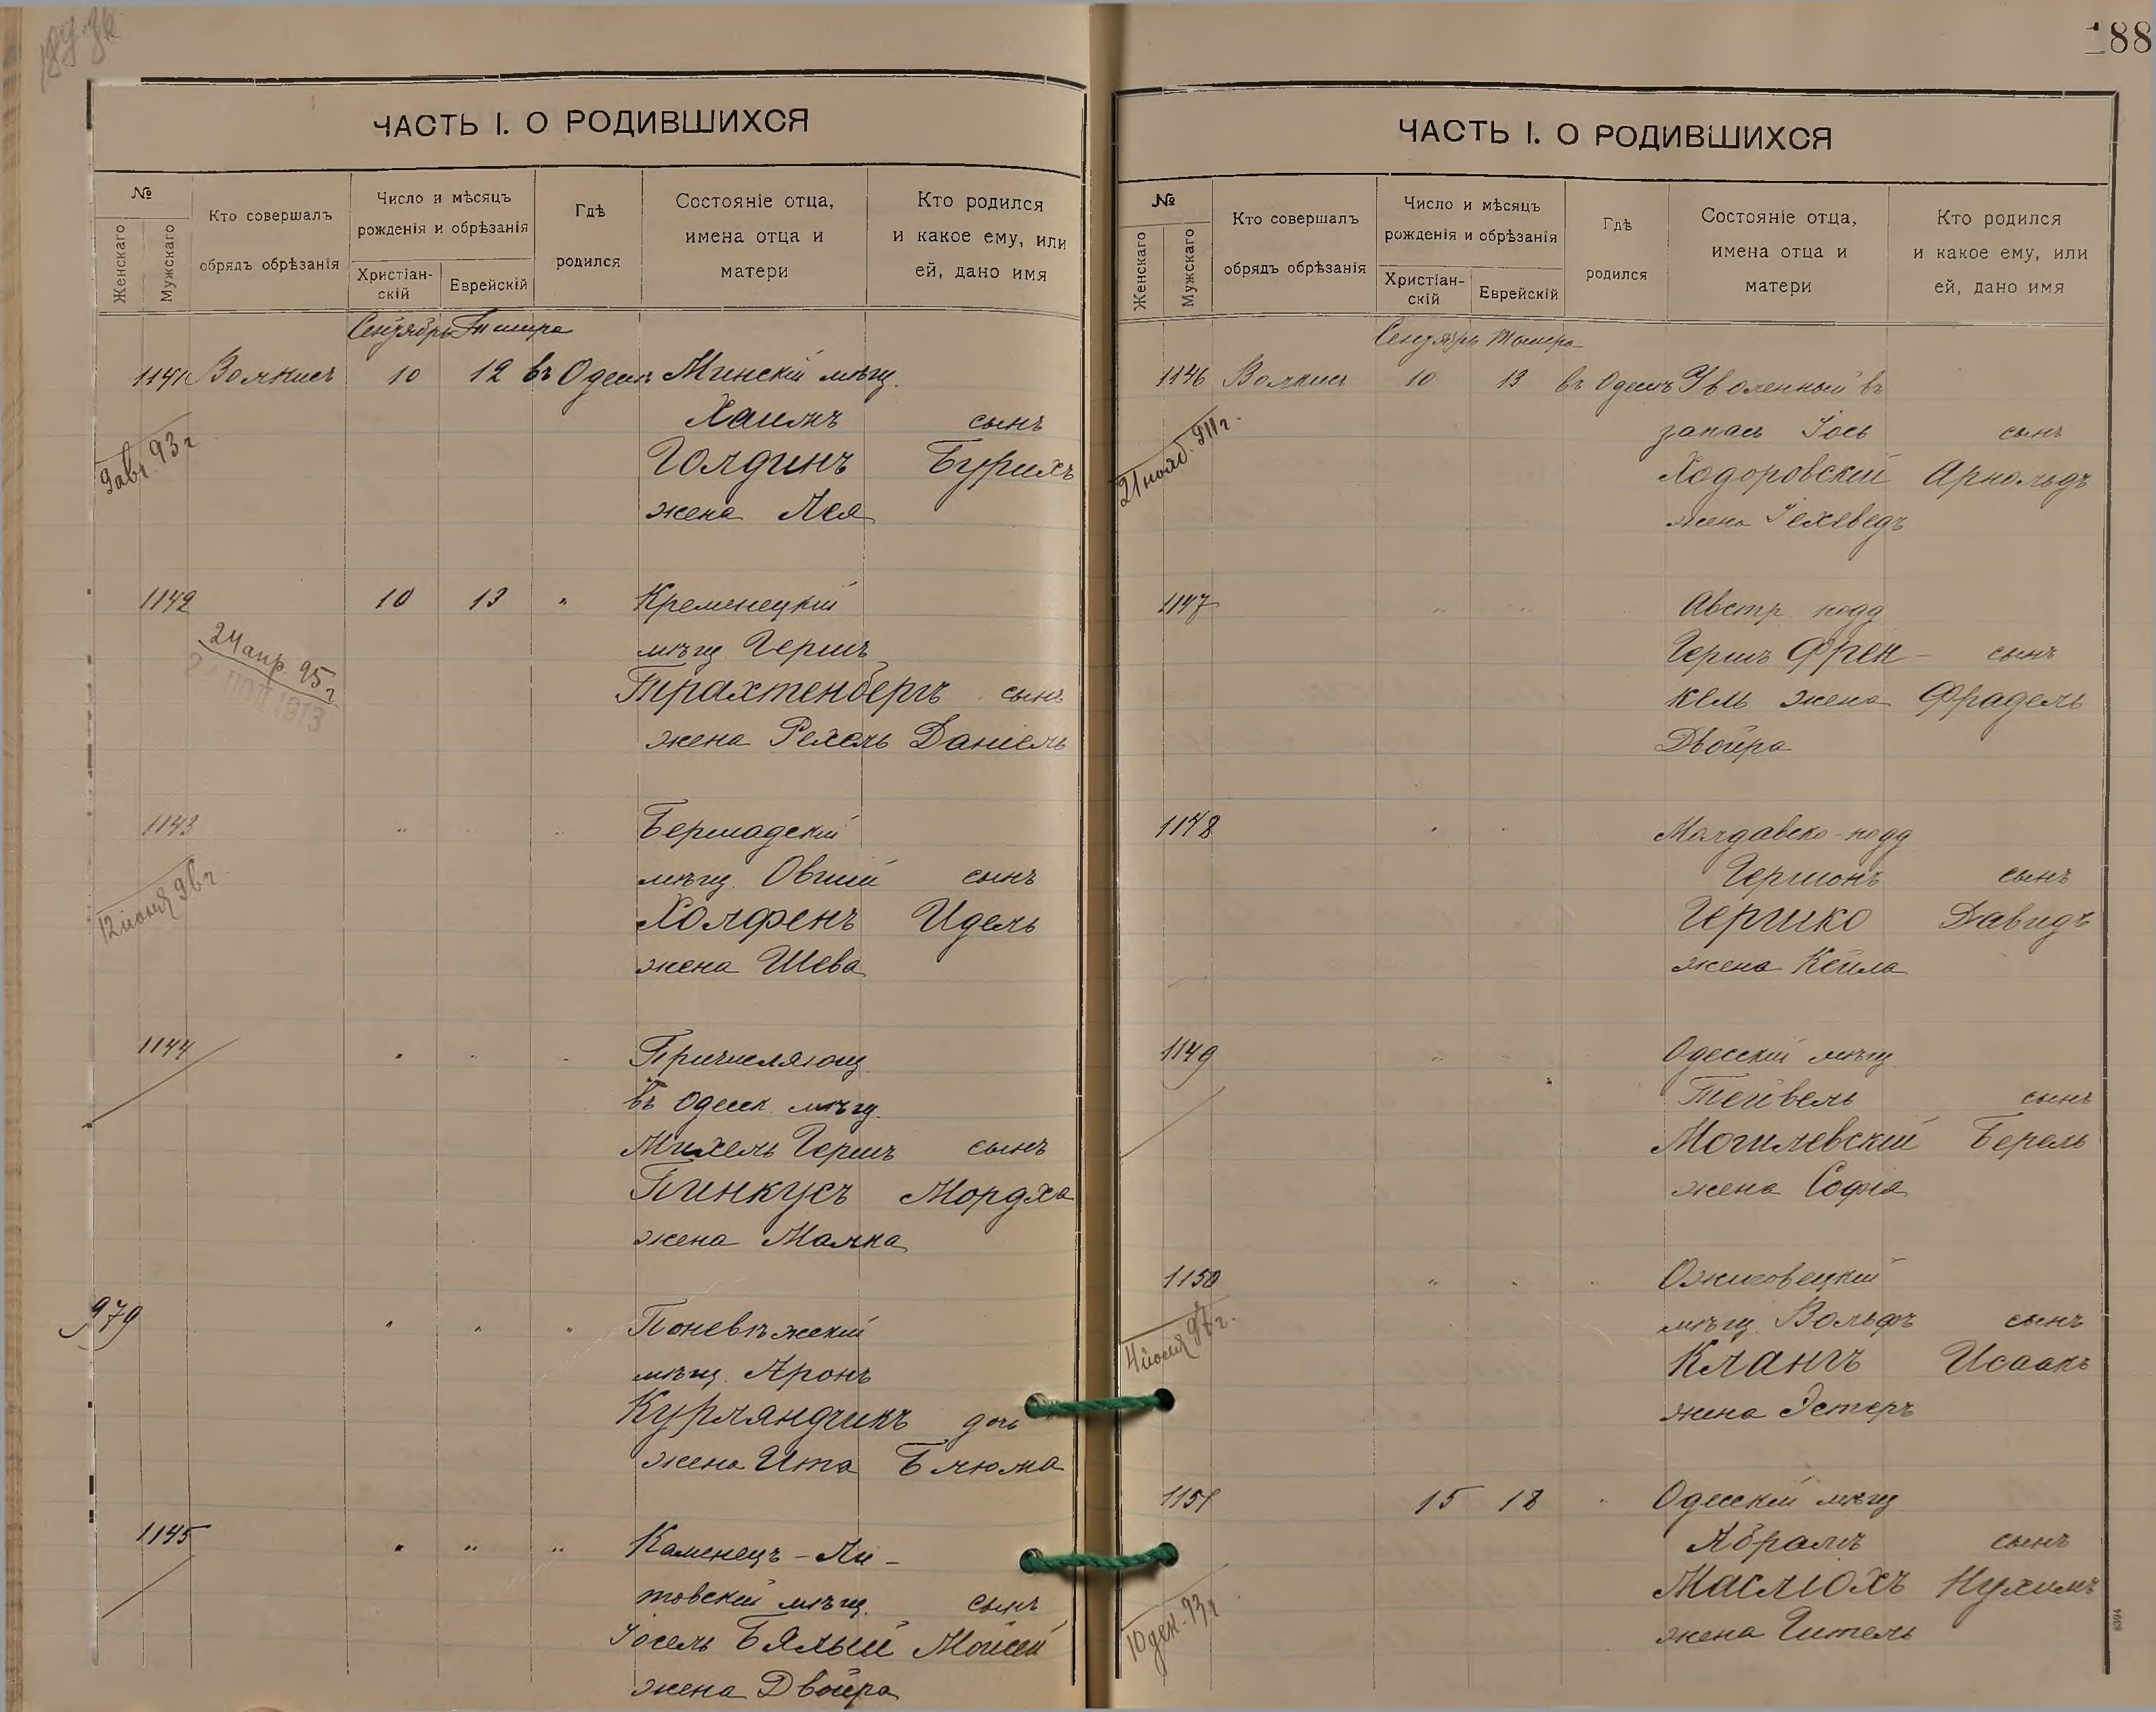 188
ЧАСТЬ I. О РОДИВШИХСЯ
№
Женскаго
Мужскаго
Кто совершалъ
обрядъ обрѣзанія
Число и мѣсяцъ
рожденія и обрѣзанія
Христіан-
скій
Еврейскій
Гдѣ
родился
Состояніе отца,
имена отца и
матери
Кто родился
и какое ему, или
ей, дано имя
Сентябрь Тишра
1141 10 12 въ Одессѣ Минскій мѣщ.
Хаимъ сынъ
9 авг. 93 г
Голдинъ Бурихъ
жена Лея
1142 10 13 " Кременецкій
24 апр. 95 г
мѣщ Гершъ
Трахтенбергъ сынъ
жена Рехель Даніель
1143 " " " Бершадскій
мѣщ. Овшій сынъ
12 іюня 96 г.
Холфенъ Идель
жена Шева
1144 " " " Причисляющ.
въ Одесск. мѣщ.
Михель Гершъ сынъ
Пинкусъ Мордхо
жена Малка
979 " " " Поневѣжскій
мѣщ. Аронъ
Курляндчикъ дочь
жена Ита Блюма
1145 " " " Каменецъ-Ли-
товскій мѣщ. сынъ
Іосель Бялый Мойсей
жена Двойра
ЧАСТЬ I. О РОДИВШИХСЯ
№
Женскаго
Мужскаго
Кто совершалъ
обрядъ обрѣзанія
Число и мѣсяцъ
рожденія и обрѣзанія
Христіан-
скій
Еврейскій
Гдѣ
родился
Состояніе отца,
имена отца и
матери
Кто родился
и какое ему, или
ей, дано имя
Сентябрь Тишра
1146 10 13 въ Одессѣ Уволенный въ
запасъ Іось сынъ
21 нояб. 911 г.
Ходоровскій Арнольдъ
жена Іехеведъ
1147 " " Австр. подд
Гершъ Френ- сынъ
кель жена Фрадель
Двойра
1148 " " Молдавско-подд
Гершонъ сынъ
Гершко Давидъ
жена Кейла
1149 " " Одесскій мѣщ
Тейвель сынъ
Могилевскій Берель
жена Софія
1150 " " " Ожиговецкій
мѣщ. Вольфъ сынъ
4 іюля 97 г.
Клангъ Исаакъ
жена Эстеръ
1151 15 18 " Одесскій мѣщ
Абрамъ сынъ
10 дек. 93 г
Масліохъ Нухимъ
жена Гитель